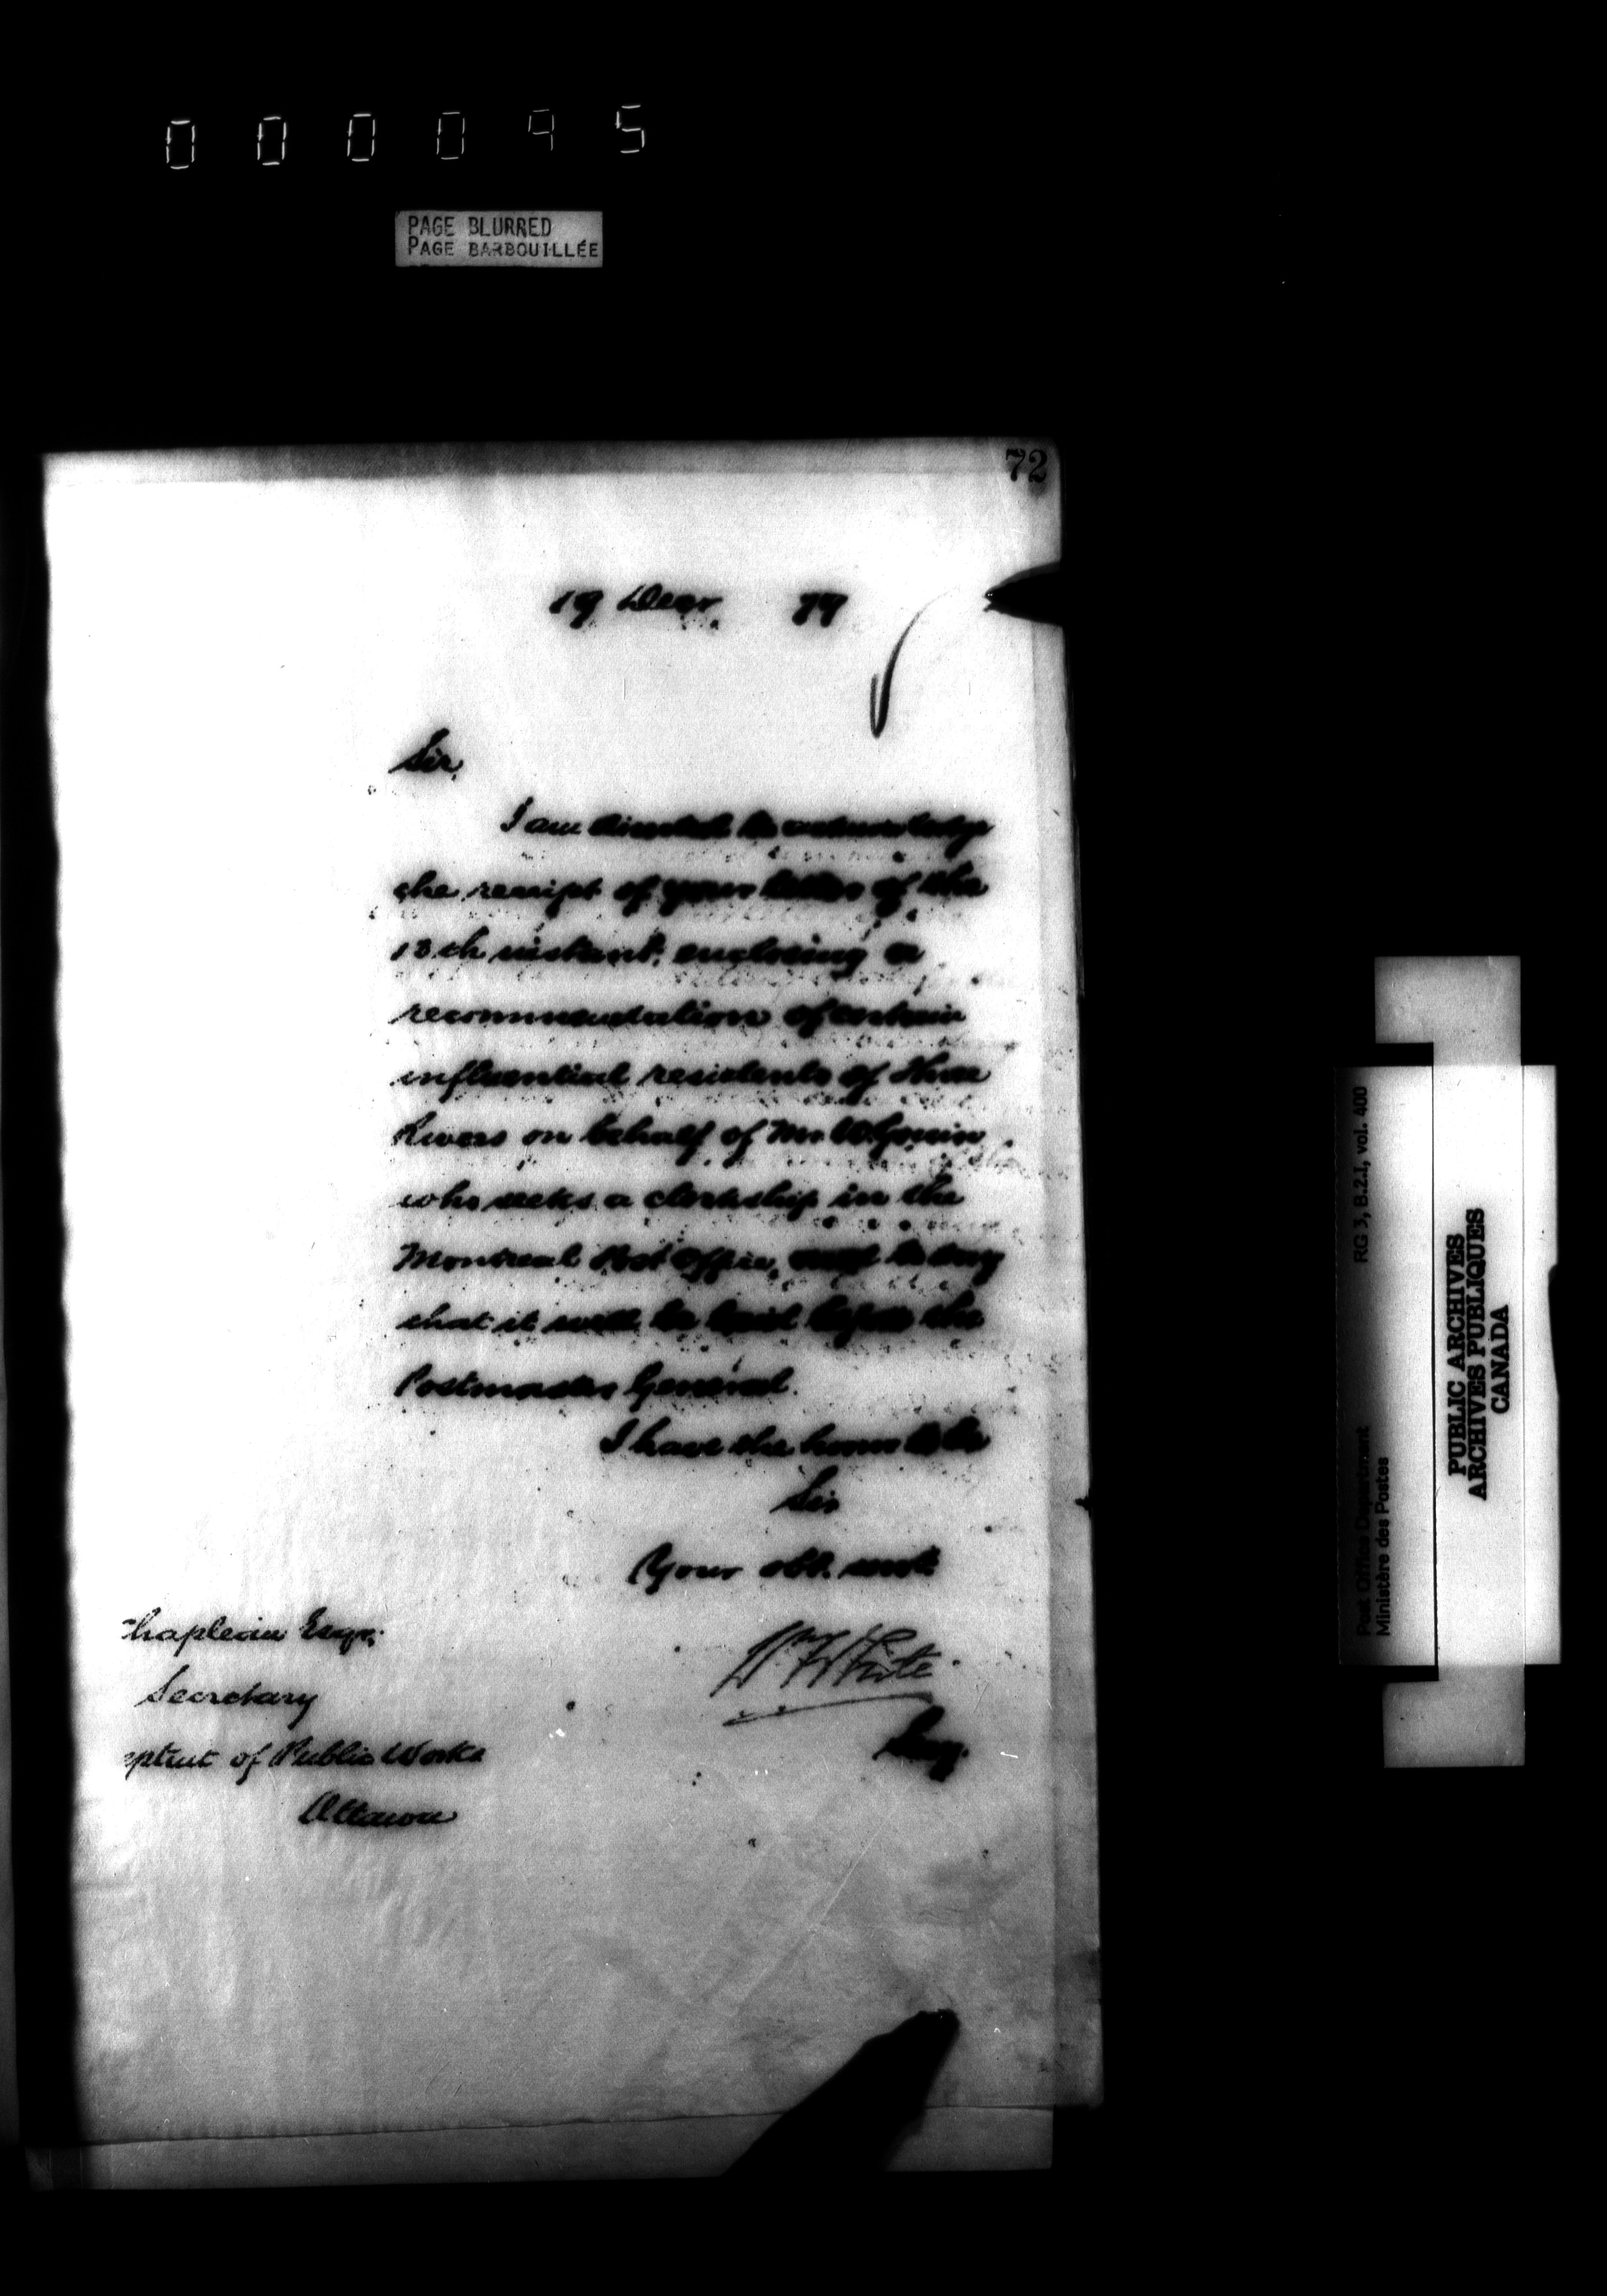 000095
PAGE BLURRED
PAGE BARBOUILLÉE
72
19 Decr. 77
Sir,
I am directed to acknowledge
the receipt of your letter of the
13th instant, enclosing a
recommendation of certain
influential residents of Three
Rivers on behalf of Mr. W. Gouin
who seeks a clerkship in the
Montreal Post Office, and to say
that it will be laid before the
Postmaster General.
I have the honor to be
Sir
Your obt. servt.
Wm White
Secy.
hapleau Esqr.
Secretary
eptmt of Public Works
Ottawa
RG 3, B.2.I, vol. 400
Post Office Department
Ministère des Postes
PUBLIC ARCHIVES
ARCHIVES PUBLIQUES
CANADA